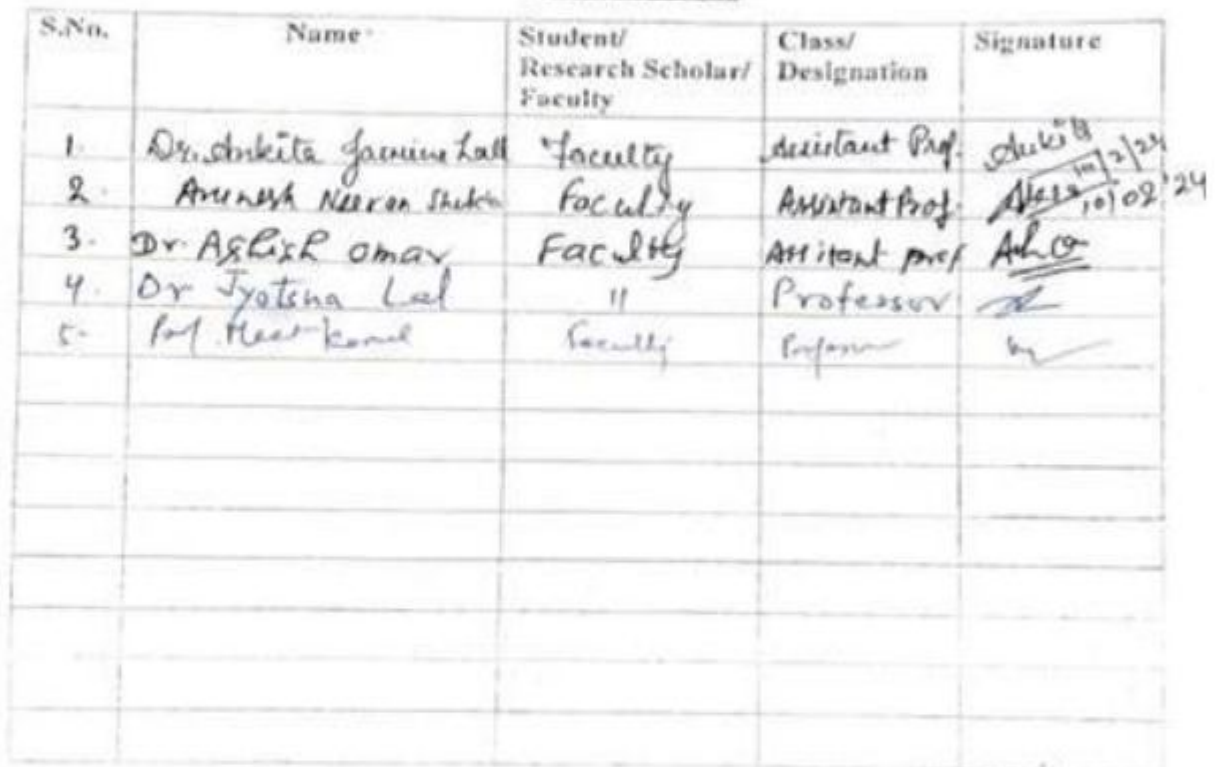 S.No. Name Student/ Research Scholar/ Faculty Class/ Designation Signature
1. Dr. Ankita Jasmine Lall Faculty Assistant Prof. Ankita 10/2/24
2. Faculty Assistant Prof. 10/02/24
3. Dr. Ashish Omar Faculty Assitant prof
4. Dr Jyotsna Lal " Professor
5. Prof. Faculty Professor